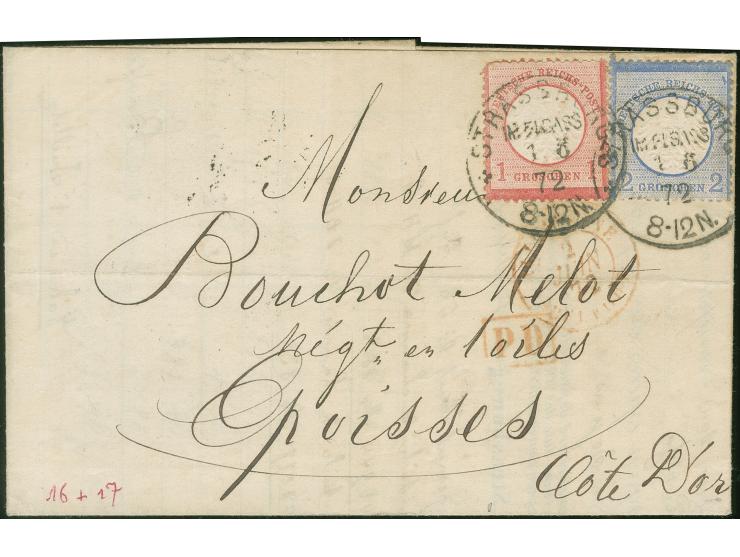 DEUTSCHE REICHS-POST
1 GROSCHEN
DEUTSCHE REICHS-POST
2 GROSCHEN 2
STRASSBURG
1 6
72
8-12N.
STRASSBURG
1 6
72
8-12N.
Monsieur
Bouchot Melot
Négt en toiles
Epoisses
Côte D'or
P.D.
JUIN
16 + 17